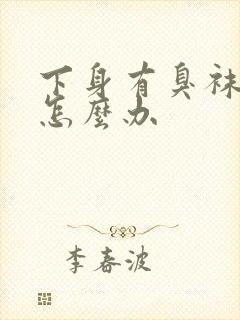 下身有臭袜
怎麼办
李春波